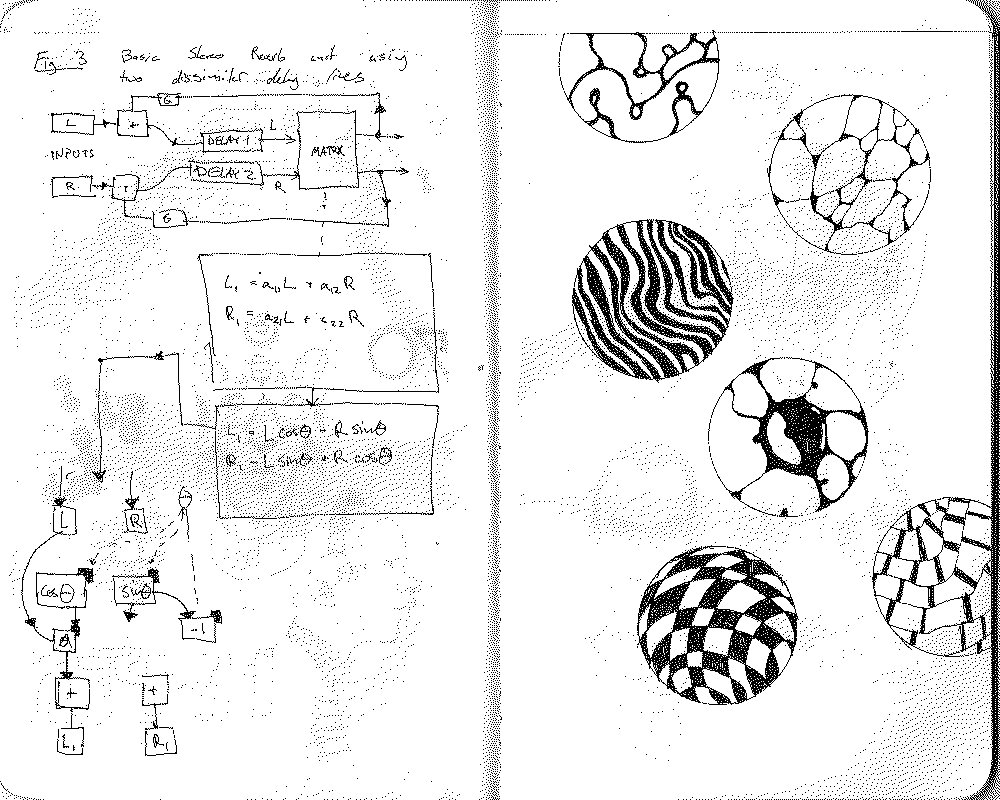 Fig. 3 Basic Stereo Reverb unit using
two dissimilar delay lines
G
L + DELAY 1 L
INPUTS MATRIX
R + DELAY 2 R
G
L₁ = a₁₁L + a₁₂R
R₁ = a₂₁L + a₂₂R
L₁ = L cosΘ - R sinΘ
R₁ = L sinΘ + R cosΘ
L R Θ
cosΘ sinΘ
-1
+ +
L₁ R₁